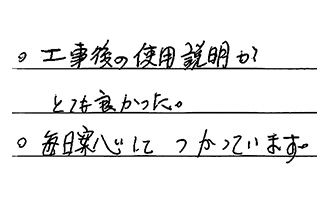 ○ 工事後の使用説明が
とても良かった。
○ 毎日安心して つかっています。